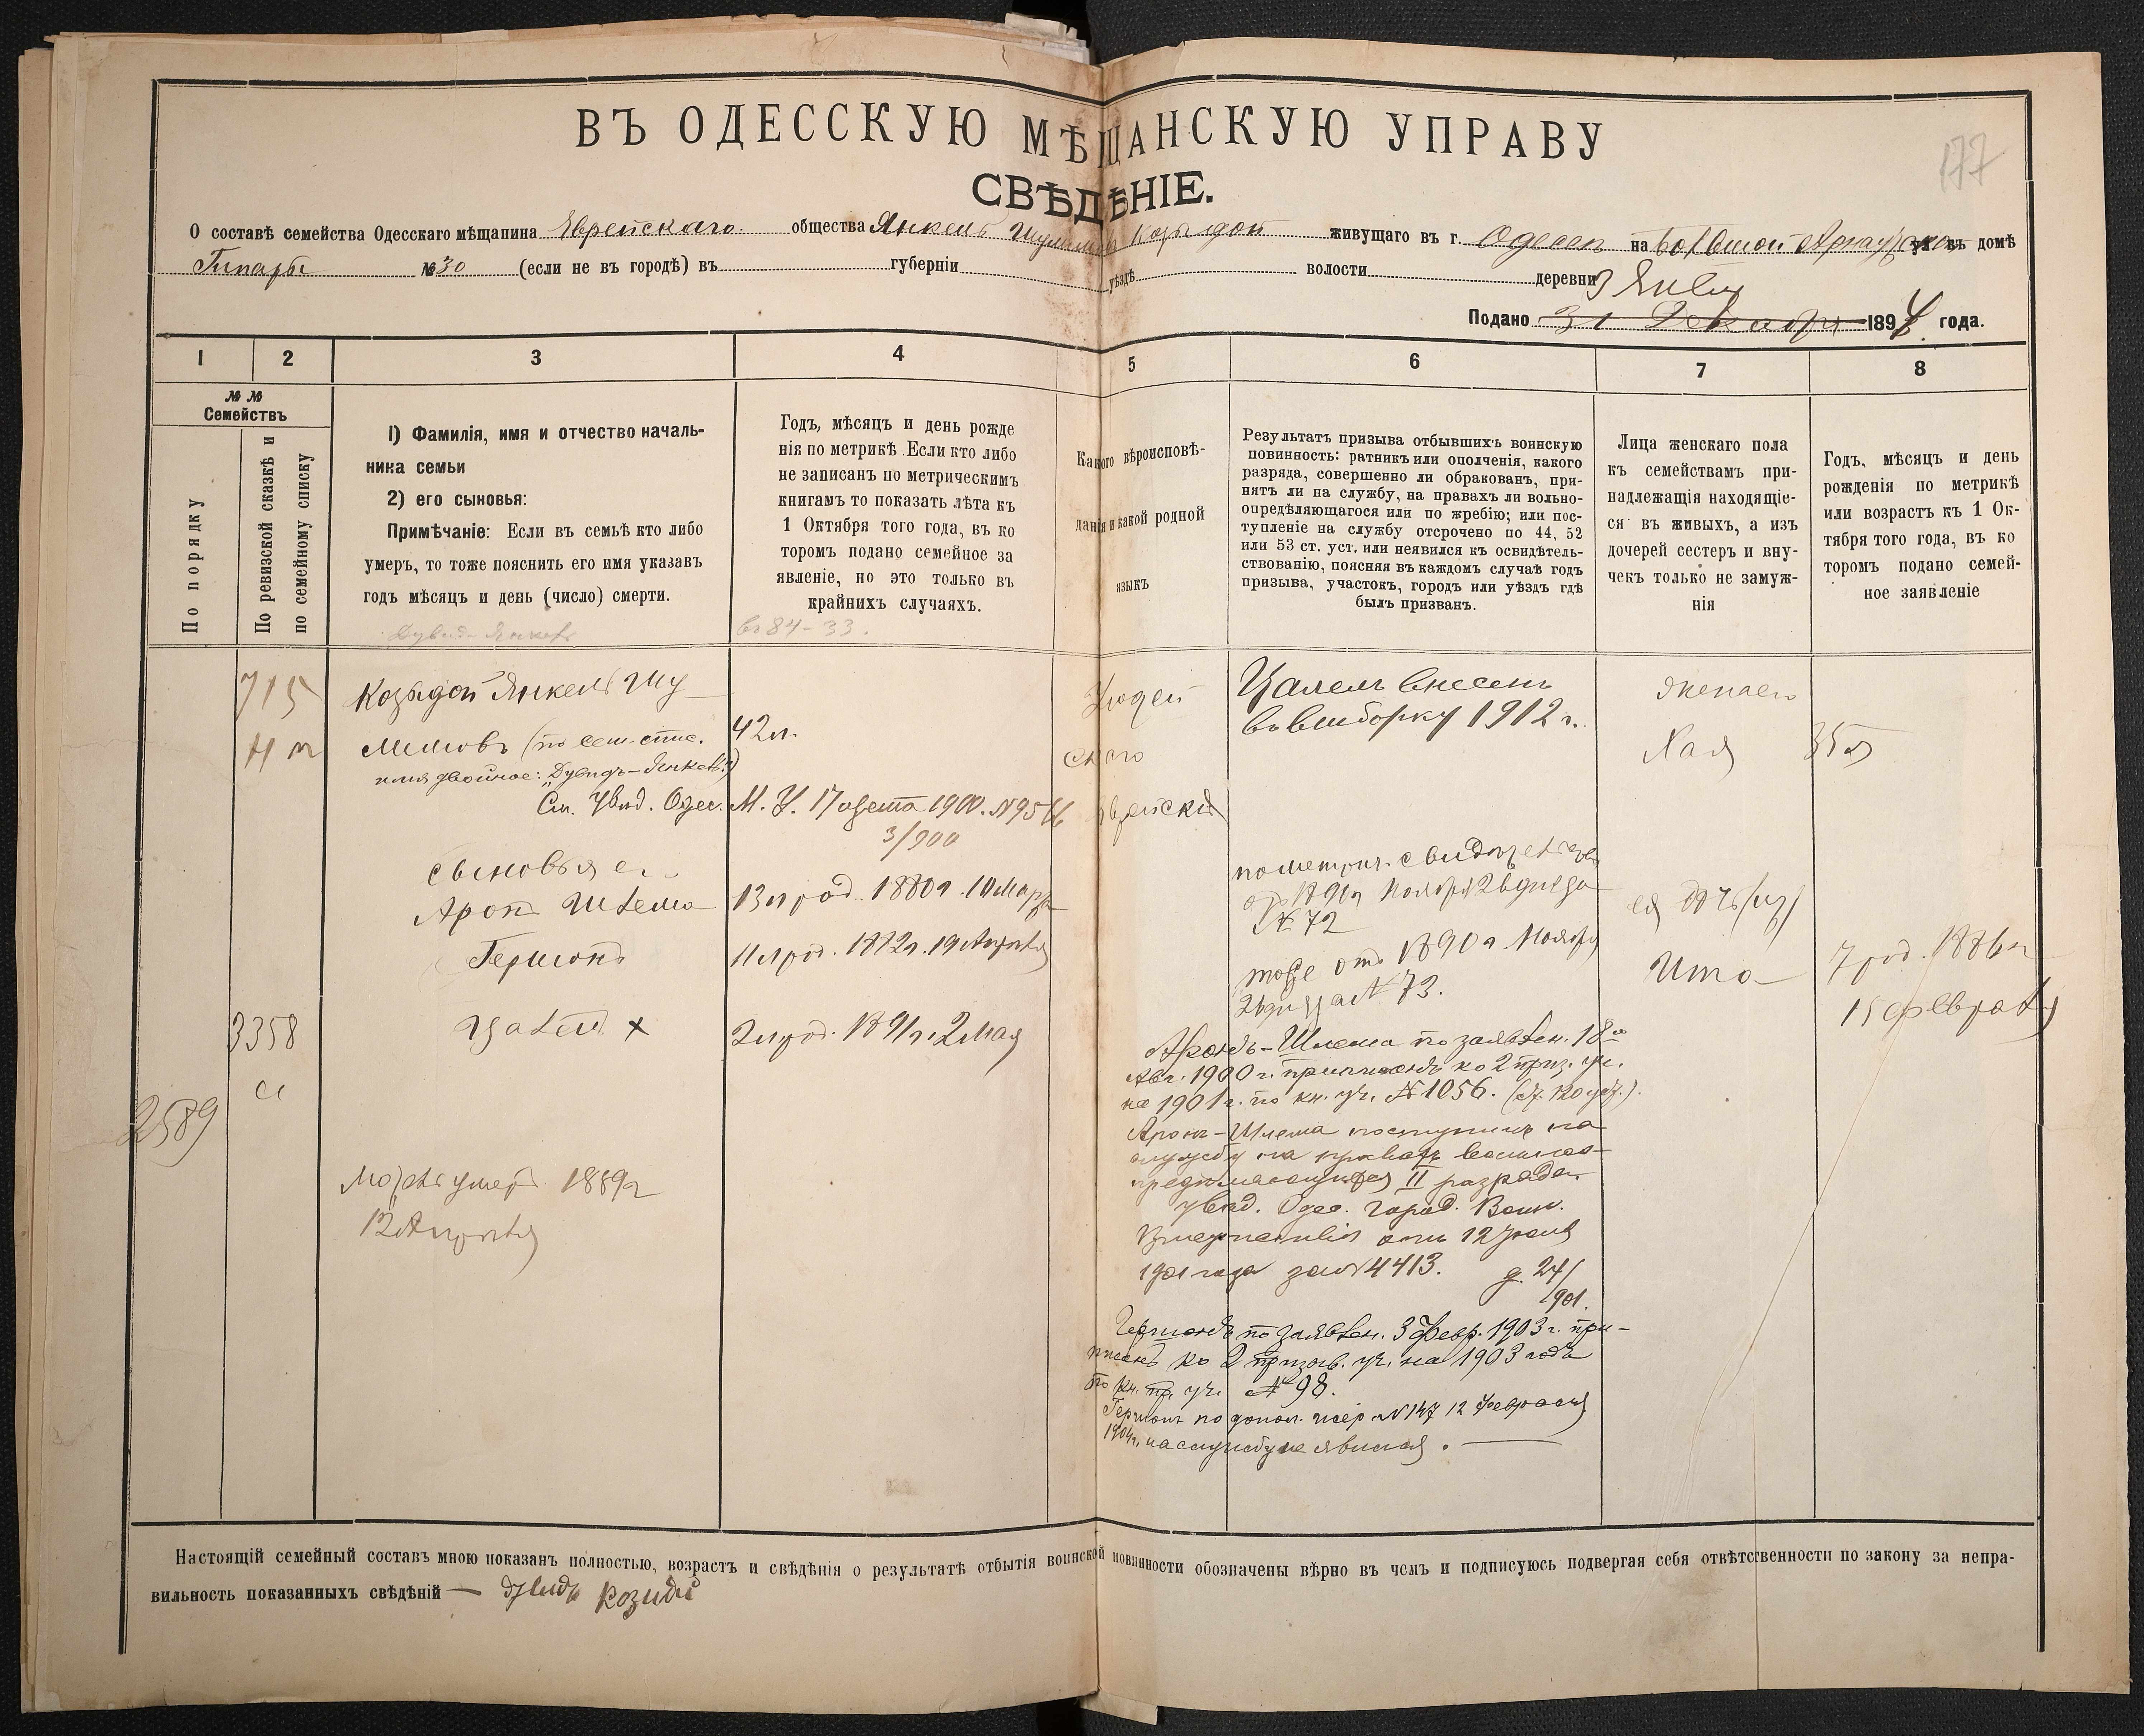 177
ВЪ ОДЕССКУЮ МѢЩАНСКУЮ УПРАВУ
СВѢДѢНІЕ.
О составѣ семейства Одесскаго мѣщанина Еврейскаго общества Янкель живущаго въ г. Одессѣ на Большой ул. въ домѣ
№ 30 (если не въ городѣ) въ губерніи уѣздѣ волости деревни
3 Янв
Подано 31 Декабря 1894 года.
1 2 3 4 5 6 7 8
№ №
Семействъ
По порядку
По ревизской сказкѣ и
по семейному списку
1) Фамилія, имя и отчество началь-
ника семьи
2) его сыновья:
Примѣчаніе: Если въ семьѣ кто либо
умеръ, то тоже пояснить его имя указавъ
годъ мѣсяцъ и день (число) смерти.
Годъ, мѣсяцъ и день рожде
нія по метрикѣ Если кто либо
не записанъ по метрическимъ
книгамъ то показать лѣта къ
1 Октября того года, въ ко
торомъ подано семейное за
явленіе, но это только въ
крайнихъ случаяхъ.
84-33.
Какого вѣроисповѣ-
данія и какой родной
языкъ
Результатъ призыва отбывшихъ воинскую
повинность: ратникъ или ополченія, какого
разряда, совершенно ли обракованъ, при-
нятъ ли на службу, на правахъ ли вольно-
опредѣляющагося или по жребію; или пос-
тупленіе на службу отсрочено по 44, 52
или 53 ст. уст. или неявился къ освидѣтель-
ствованію, поясняя въ каждомъ случаѣ годъ
призыва, участокъ, городъ или уѣздъ гдѣ
былъ призванъ.
Лица женскаго пола
къ семействамъ при-
надлежащія находящіе-
ся въ живыхъ, а изъ
дочерей сестеръ и вну-
чекъ только не замуж-
нія
Годъ, мѣсяцъ и день
рожденія по метрикѣ
или возрастъ къ 1 Ок-
тября того года, въ ко
торомъ подано семей-
ное заявленіе
715
Козыдой Янкель Шу
лимовъ (по сем. спис.
имя двойное: "Дувидъ-Янкель")
42 л.
См. увѣд. Одес. М. У. 17 августа 1900. №
3/900
Іудей
скаго
Еврейскій
Цалель внесенъ
въ выборку 1912 г.
жена его
Хая
35 л
сыновья его
Аронъ Шлема
13 л род. 1880 г. 10 Марта
по метрич. свидѣтельству
1890 г Ноября 26 дня за
№ 72
Гершонъ
11 л род. 1882 г. 19 Апрѣля
тоже отъ 1890 г Ноября
26 дня за № 73.
ея дочь
Ита
7 род. 1886 г
15 февраля
3358
Цалель х
2 л род. 1891 г. 2 Мая
2589
умеръ 1889 г
12 Апрѣля
Аронъ-Шлема по заявлен. 18го
Авг. 1900 г. приписанъ ко 2 приз. уч.
на 1901 г. по кн. уч. № 1056.
Аронъ-Шлема поступилъ на
службу на правахъ вольноо-
предѣляющагося II разряда
увѣд. Одес. Город. Воин.
Присутствія отъ 12 Іюля
1901 года за № 4413. д. 24/
901.
Гершонъ по заявлен. 3 Февр. 1903 г. при-
писанъ ко 2 призыв. уч. на 1903 годъ
по кн. пр. уч. № 98.
Гершонъ по допол. жер № 147 12 Февраля
1904 г. на службу не явился.
Настоящій семейный составъ мною показанъ полностью, возрастъ и свѣдѣнія о результатѣ отбытія воинской повинности обозначены вѣрно въ чемъ и подписуюсь подвергая себя отвѣтственности по закону за непра-
вильность показанныхъ свѣдѣній — Дувидъ